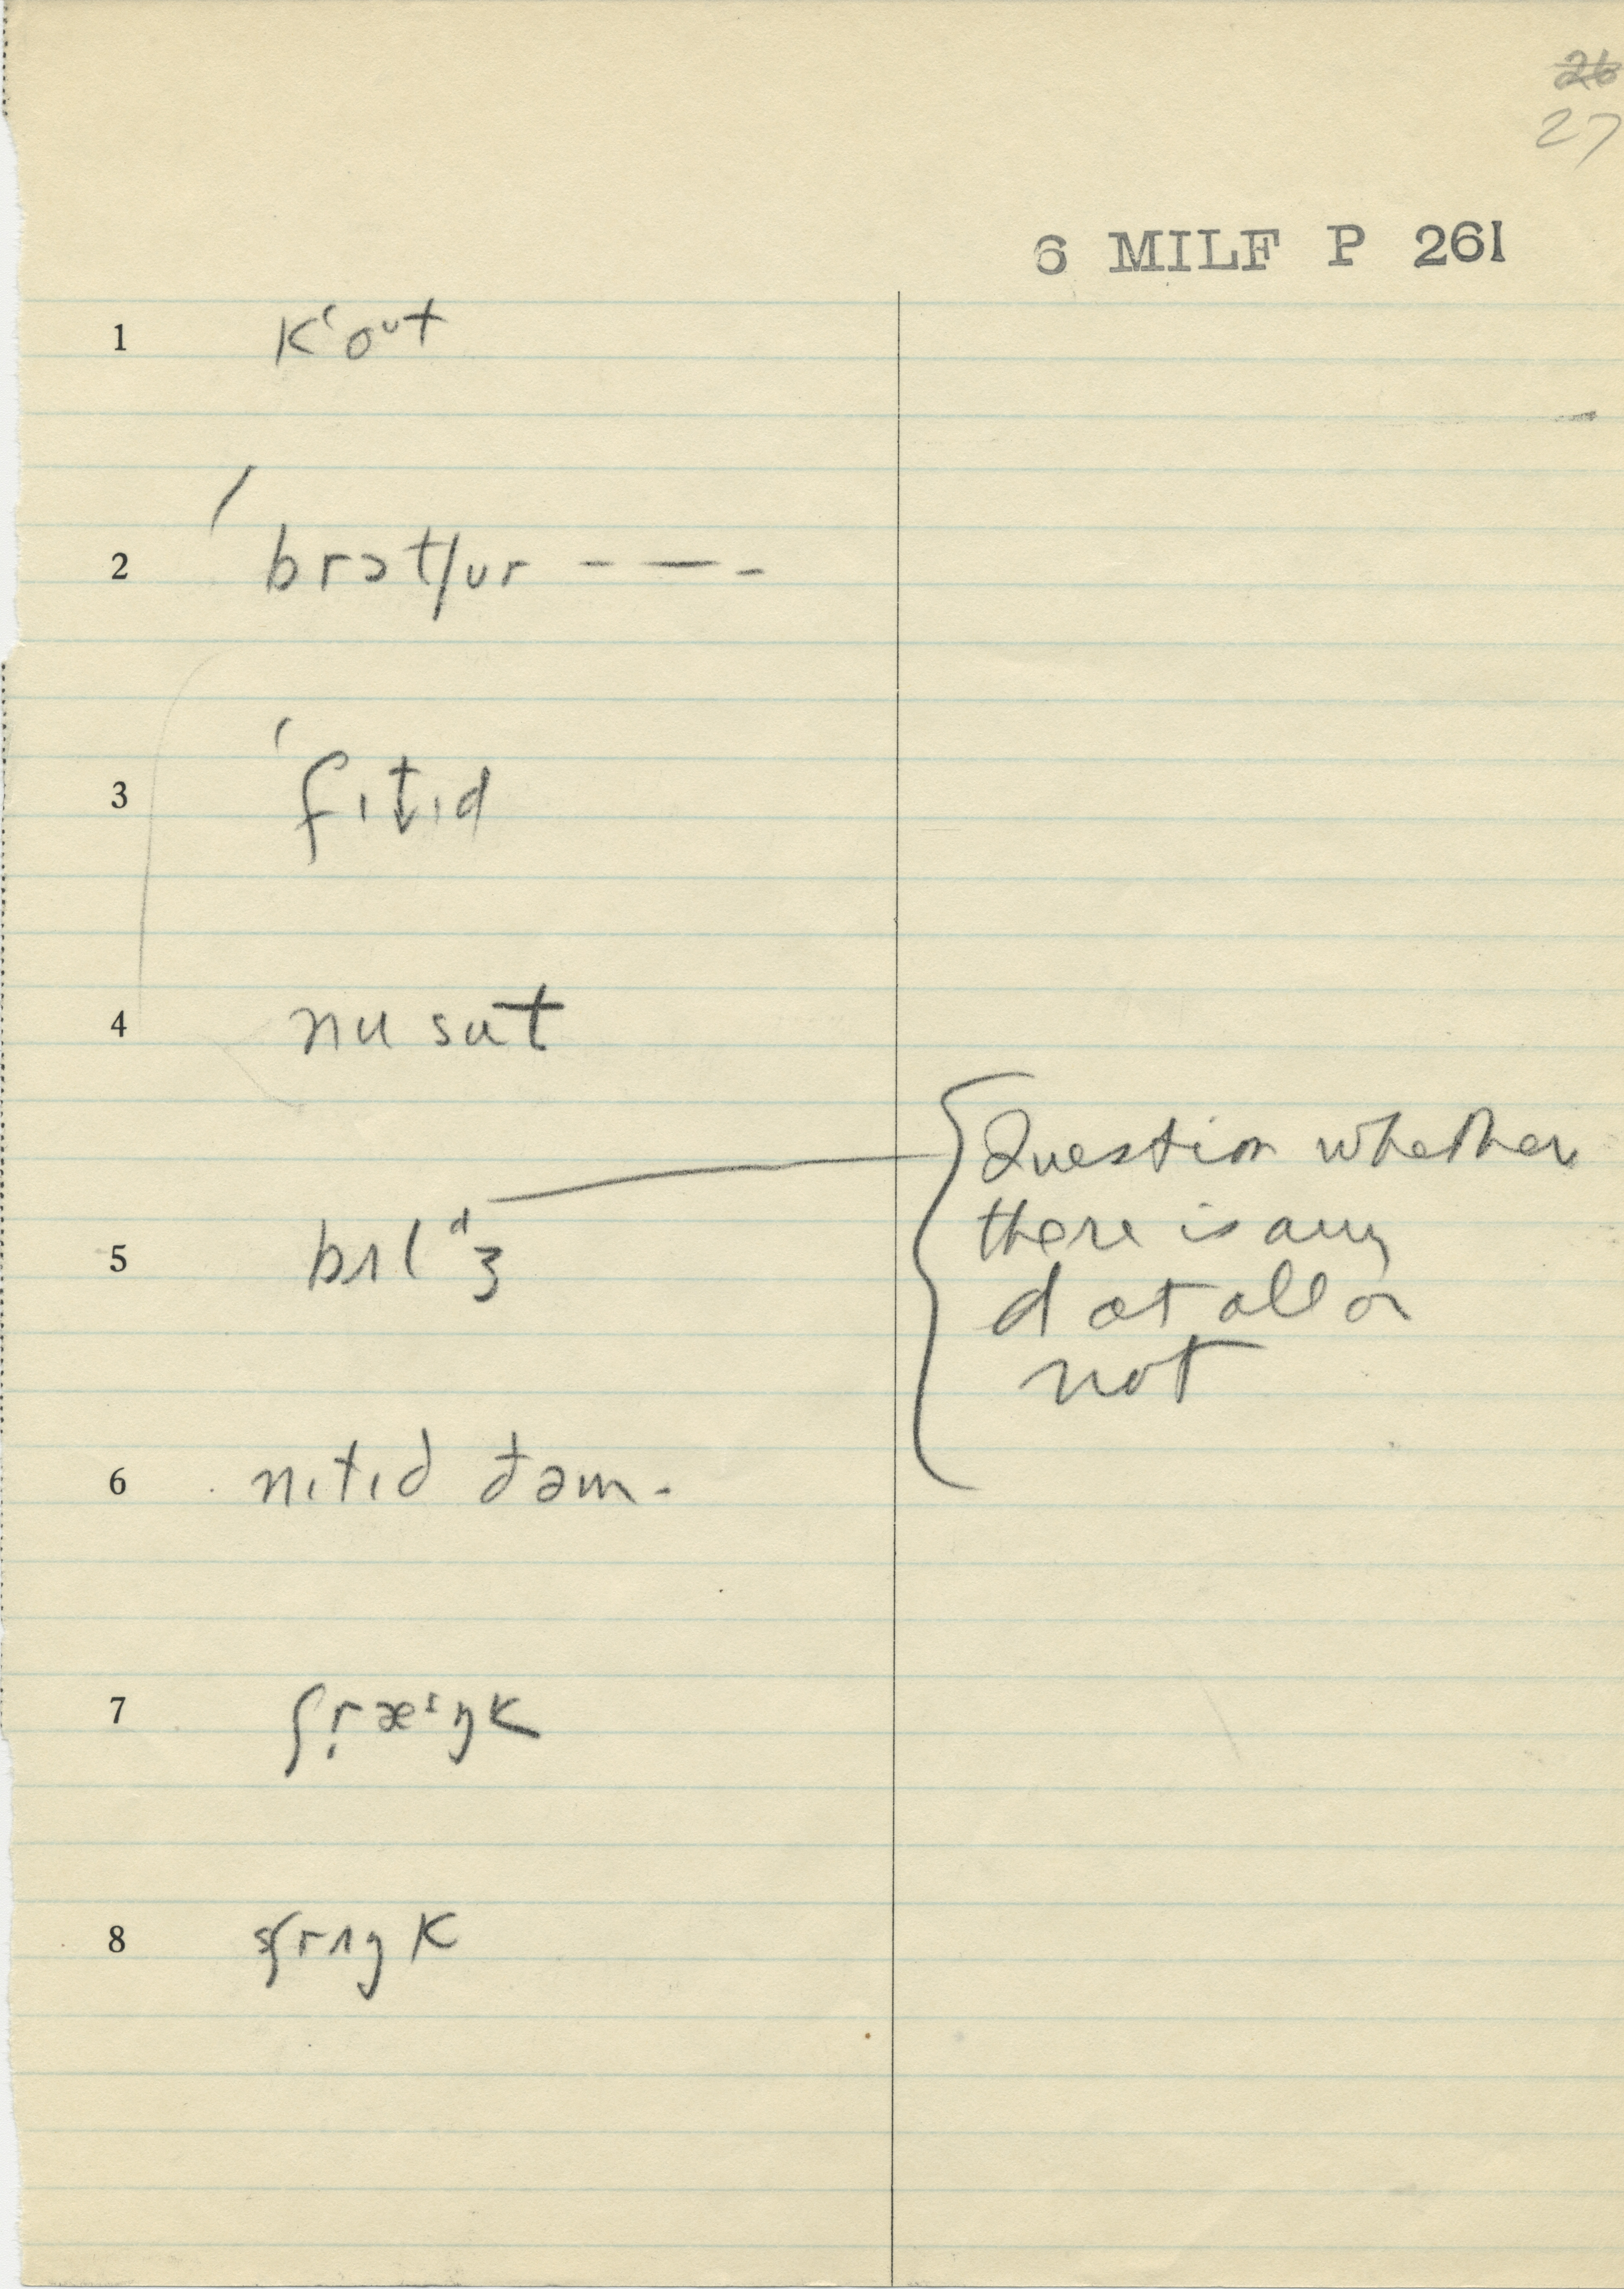 26
27
6 MILF P 261
1 kʻoᵘt
2 brɔtʃur – — -
3 ʃɪt̬ɪd
4 nu sut
5 bɪlᵈʒ
Question whether
there is any
d at all or
not
6 nɪtɪd ðəm.
7 ʃr̥æᶦŋk
8 sʃrɪŋk